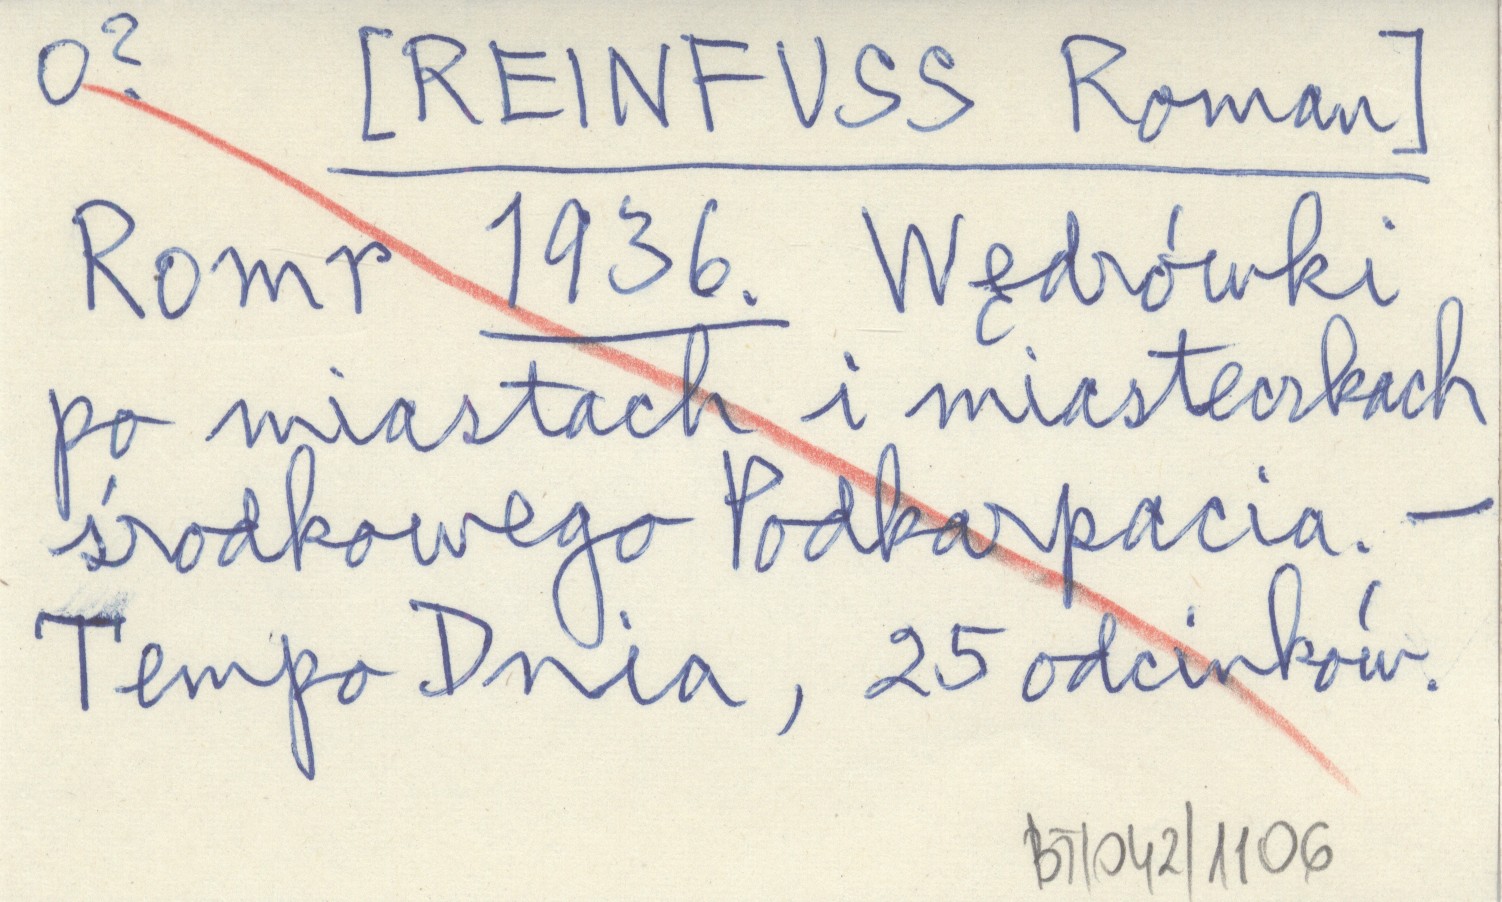 O? [REINFUSS Roman]
Romr 1936. Wędrówki
po miastach i miasteczkach
środkowego Podkarpacia. –
Tempo Dnia, 25 odcinków.
BT/042/1106